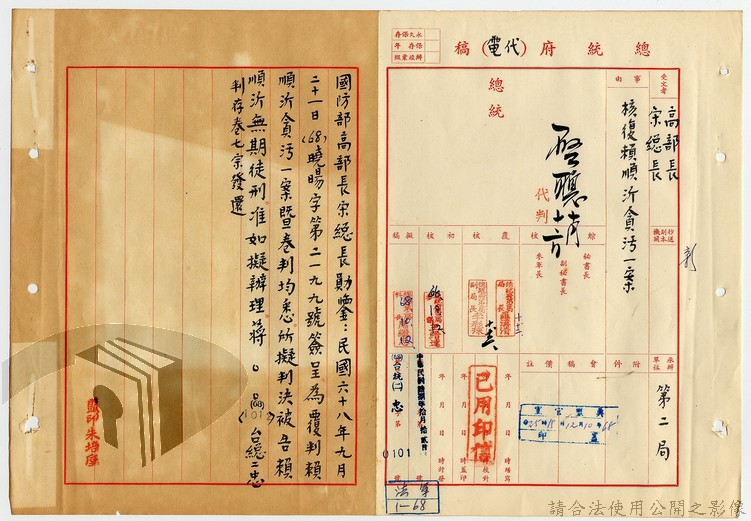 總統府（代電）稿
永久保存
受文者
高部長
宋總長
事由
核復賴順沂貪汚一案
總統
代判
秘書長
副秘書長
參軍長
核
覆
核
初
擬稿
承辦單位
第二局
附件
會稿
備註
年 月 日 時繕寫
年 月 日 時校對
年 月 日 時蓋印
年 月 日 時封發
已用印信
忠
第
0101
號
法軍
1-68
國防部高部長宋總長勛鑒：民國六十八年九月
二十一日(68)曉暘字第二一九九號簽呈為覆判賴
順沂貪汚一案暨卷判均悉所擬判決被告賴
順沂無期徒刑准如擬辦理。蔣○○(68)台總二忠
(0101)
判存卷七宗發還
監印 朱培慶
請合法使用公開之影像